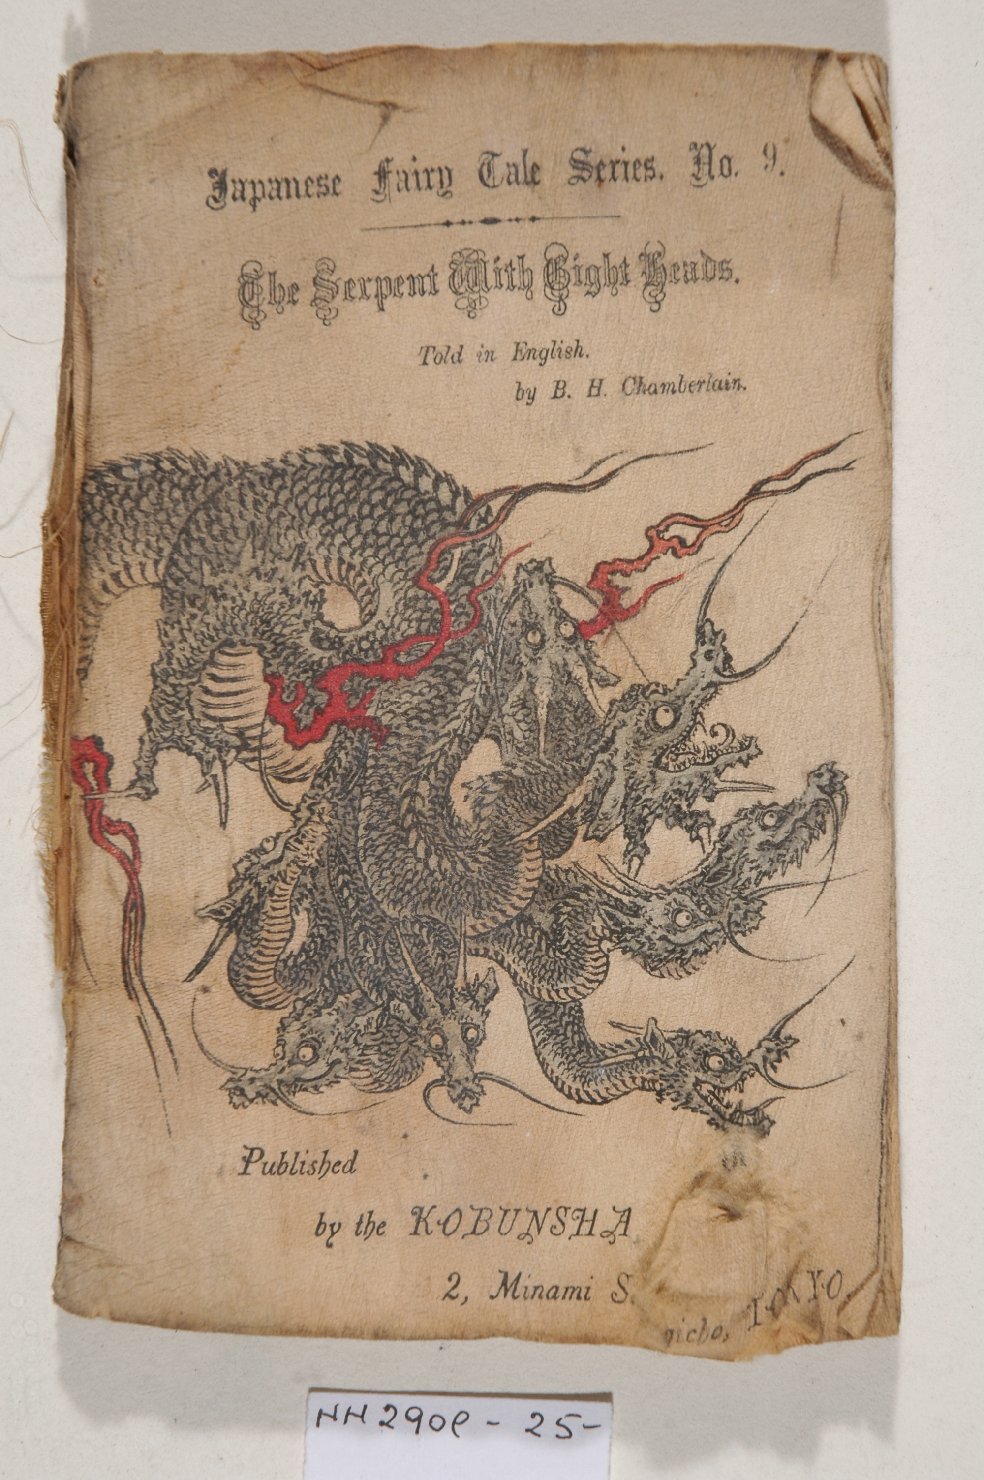 Japanese Fairy Tale Series. No. 9.
The Serpent With Eight Heads.
Told in English.
by B. H. Chamberlain.
Published
by the KOBUNSHA
2, Minami S
gicho, TOKYO.
HH290e - 25-